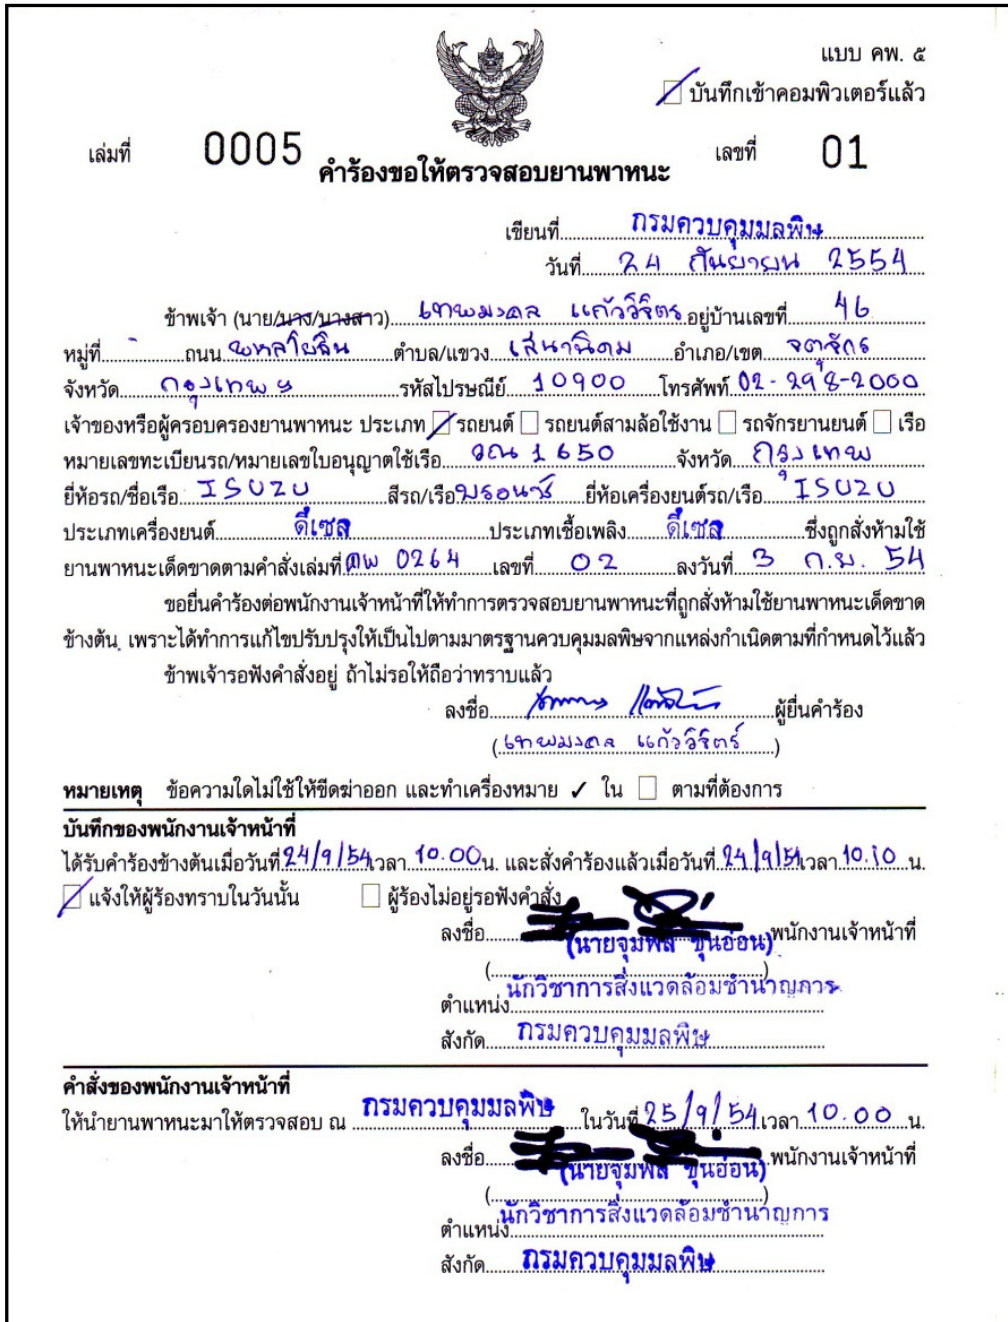 แบบ คพ. ๕
บันทึกเข้าคอมพิวเตอร์แล้ว
เล่มที่ 0005 เลขที่ 01
คำร้องขอให้ตรวจสอบยานพาหนะ
เขียนที่ กรมควบคุมมลพิษ
วันที่ 24 กันยายน 2554
ข้าพเจ้า (นาย/นาง/นางสาว) เทพมงคล แก้ววิจิตร อยู่บ้านเลขที่ 46
หมู่ที่ - ถนน พหลโยธิน ตำบล/แขวง เสนานิคม อำเภอ/เขต จตุจักร
จังหวัด กรุงเทพฯ รหัสไปรษณีย์ 10900 โทรศัพท์ 02-298-2000
เจ้าของหรือผู้ครอบครองยานพาหนะ ประเภท รถยนต์ รถยนต์สามล้อใช้งาน รถจักรยานยนต์ เรือ
หมายเลขทะเบียนรถ/หมายเลขใบอนุญาตใช้เรือ 1650 จังหวัด กรุงเทพ
ยี่ห้อรถ/ชื่อเรือ ISUZU สีรถ/เรือ บรอนซ์ ยี่ห้อเครื่องยนต์รถ/เรือ ISUZU
ประเภทเครื่องยนต์ ดีเซล ประเภทเชื้อเพลิง ดีเซล ซึ่งถูกสั่งห้ามใช้
ยานพาหนะเด็ดขาดตามคำสั่งเล่มที่ คพ 0264 เลขที่ 02 ลงวันที่ 3 ก.ย. 54
ขอยื่นคำร้องต่อพนักงานเจ้าหน้าที่ให้ทำการตรวจสอบยานพาหนะที่ถูกสั่งห้ามใช้ยานพาหนะเด็ดขาด
ข้างต้น เพราะได้ทำการแก้ไขปรับปรุงให้เป็นไปตามมาตรฐานควบคุมมลพิษจากแหล่งกำเนิดตามที่กำหนดไว้แล้ว
ข้าพเจ้ารอฟังคำสั่งอยู่ ถ้าไม่รอให้ถือว่าทราบแล้ว
ลงชื่อ ผู้ยื่นคำร้อง
(เทพมงคล แก้ววิจิตร์)
หมายเหตุ ข้อความใดไม่ใช้ให้ขีดฆ่าออก และทำเครื่องหมาย ✓ ใน ตามที่ต้องการ
บันทึกของพนักงานเจ้าหน้าที่
ได้รับคำร้องข้างต้นเมื่อวันที่ 24/9/54 เวลา 10.00 น. และสั่งคำร้องแล้วเมื่อวันที่ 24/9/54 เวลา 10.10 น.
แจ้งให้ผู้ร้องทราบในวันนั้น ผู้ร้องไม่อยู่รอฟังคำสั่ง
ลงชื่อ พนักงานเจ้าหน้าที่
(นายจุมพล ขุนอ่อน)
ตำแหน่ง นักวิชาการสิ่งแวดล้อมชำนาญการ
สังกัด กรมควบคุมมลพิษ
คำสั่งของพนักงานเจ้าหน้าที่
ให้นำยานพาหนะมาให้ตรวจสอบ ณ กรมควบคุมมลพิษ ในวันที่ 25/9/54 เวลา 10.00 น.
ลงชื่อ พนักงานเจ้าหน้าที่
(นายจุมพล ขุนอ่อน)
ตำแหน่ง นักวิชาการสิ่งแวดล้อมชำนาญการ
สังกัด กรมควบคุมมลพิษ